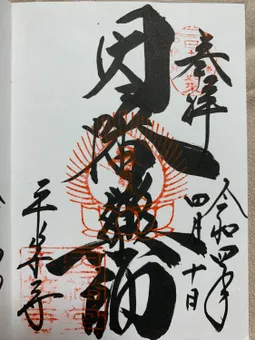 奉拝
令和四年
四月十日
因幡藥師
平等寺